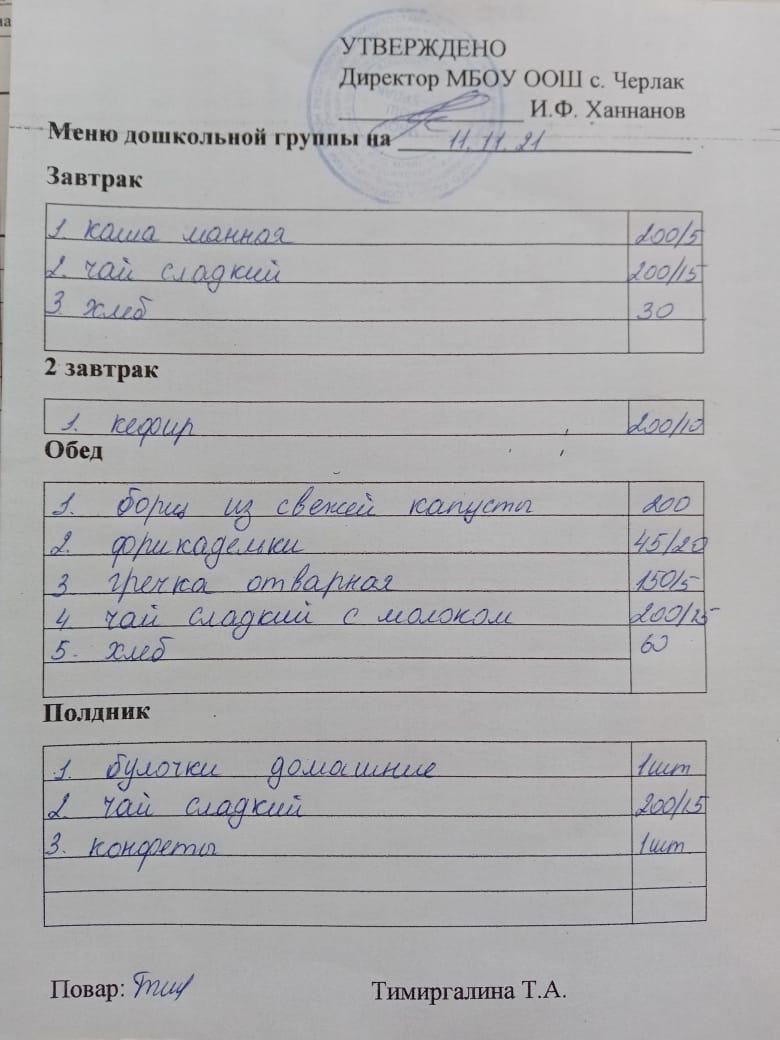 УТВЕРЖДЕНО
Директор МБОУ ООШ с. Черлак
И.Ф. Ханнанов
Меню дошкольной группы на 11.11.21
Завтрак
1. каша манная 200/5
2. чай сладкий 200/15
3. хлеб 30
2 завтрак
1. кефир 200/10
Обед
1. борщ из свежей капусты 200
2. фрикадельки 45/20
3 гречка отварная 150/5
4. чай сладкий с молоком 200/15
5. хлеб 60
Полдник
1. булочки домашние 1шт
2. чай сладкий 200/15
3. конфеты 1шт
Повар: Тимиргалина Т.А.